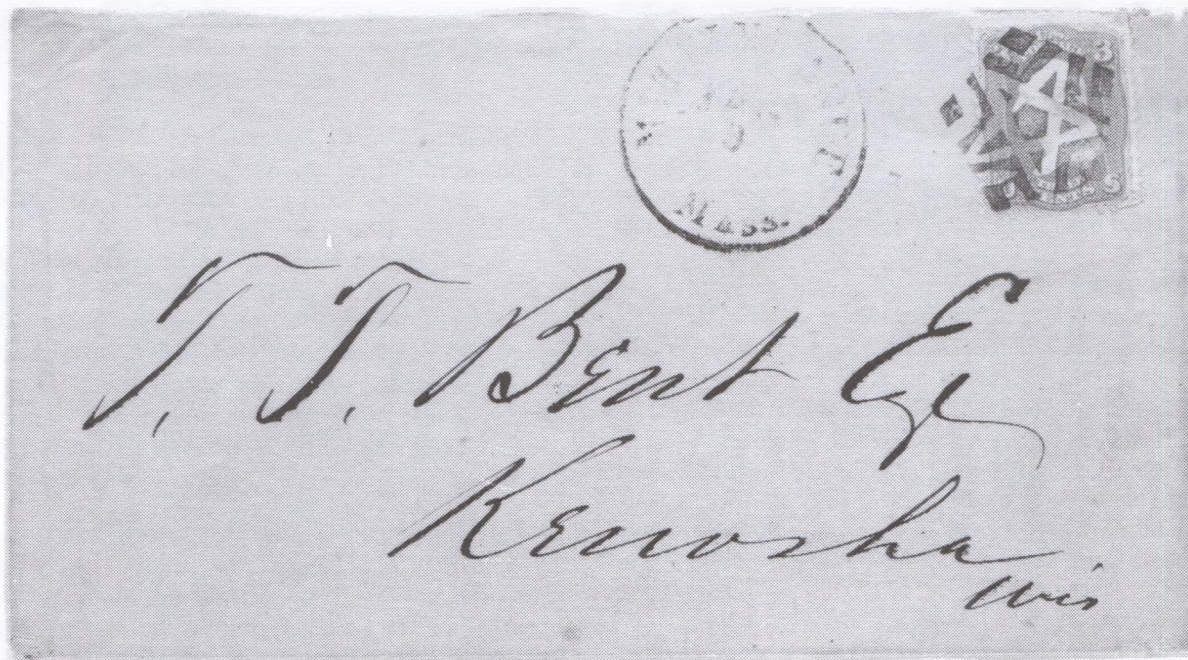 MASS.
3
T. T. Bent Esq
Kenosha
Wis